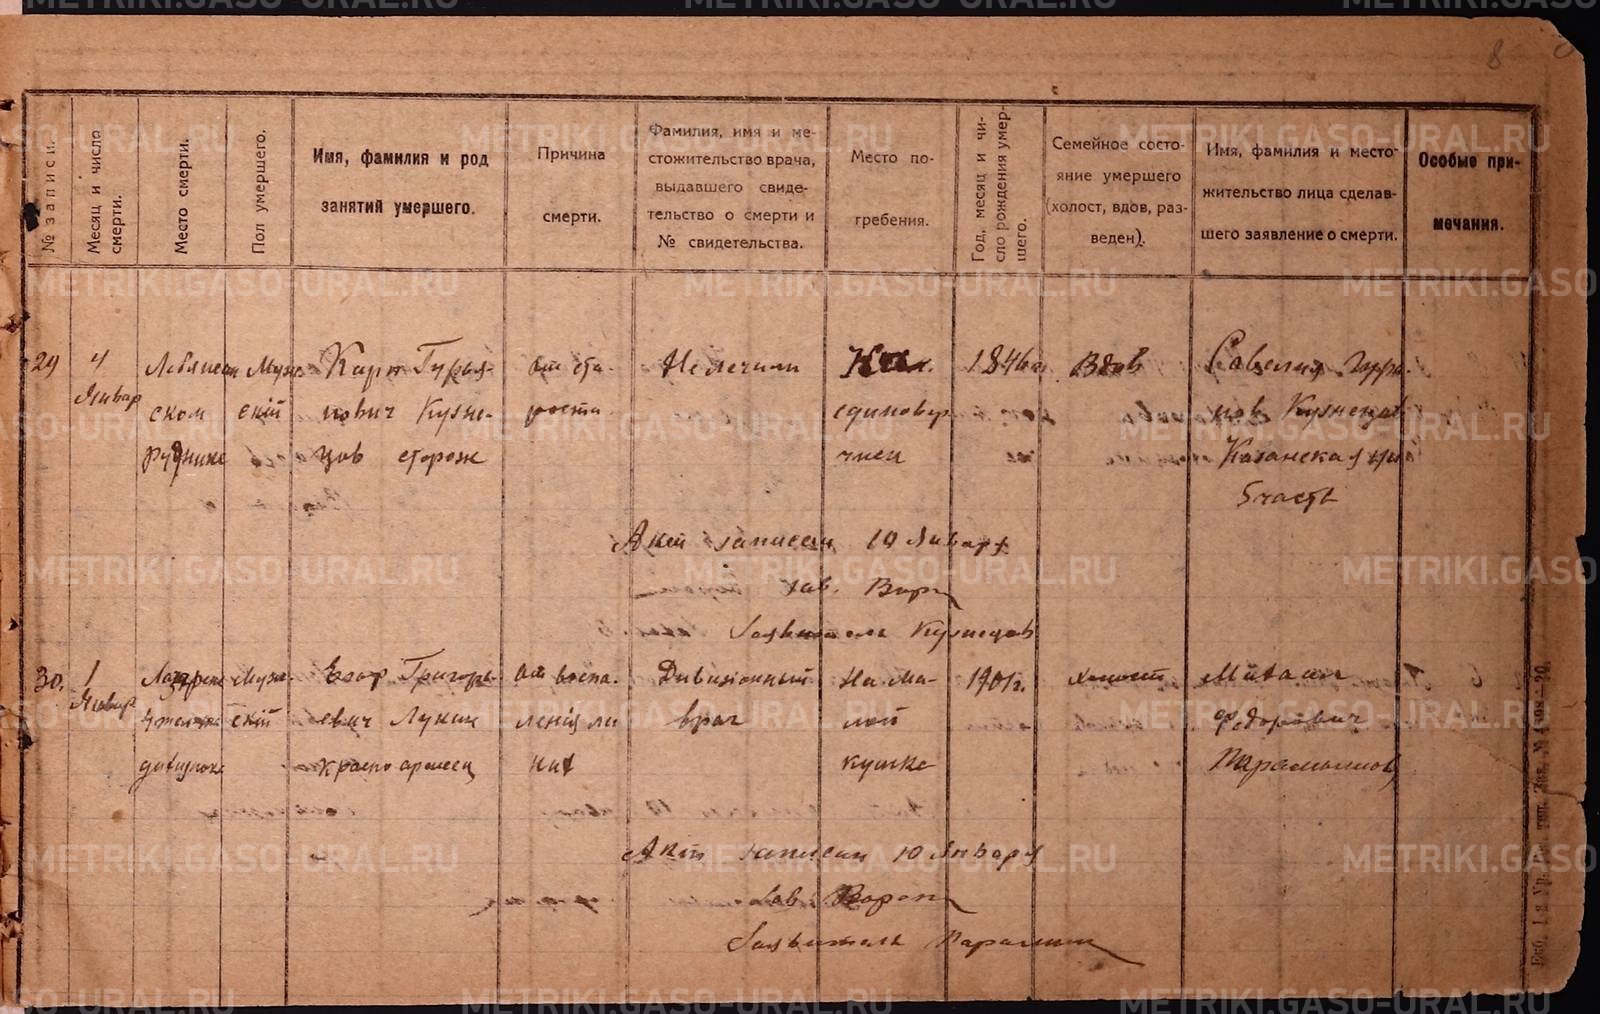 8
№ записи.
Месяц и число
смерти.
Место смерти.
Пол умершего.
Имя, фамилия и род
занятий умершего.
Причина
смерти.
Фамилия, имя и ме-
стожительство врача,
выдавшего свиде-
тельство о смерти и
№ свидетельства.
Место по-
гребения.
Год, месяц и чи-
сло рождения умер-
шего.
Семейное состо-
яние умершего
(холост, вдов, раз-
веден).
Имя, фамилия и место-
жительство лица сделав-
шего заявление о смерти.
Особые при-
мечания.
29
4
Январ
ском
руднике
Муж-
скій
Карп Гурья-
нович Кузне-
цов сторож
от ста-
рости
Не лечили
единовер
1846 г.
Вдов
Савелия
нов Кузнецов
Казанская
5 часть
Акт записан 10 Января
зав.
Заявитель Кузнецов
30.
1
Январ
дивизионе
Муж-
скій
Егор Григорь-
евич Лукин
красноармеец
от воспа-
ленія
Дивизіонный
врач
На Ма-
лой
1901 г.
холост
Федорович
Акт записан 10 Января
Зав
Заявитель
Екб. 1-я тип. Зак. № 4098—20.
METRIKI.GASO-URAL.RU